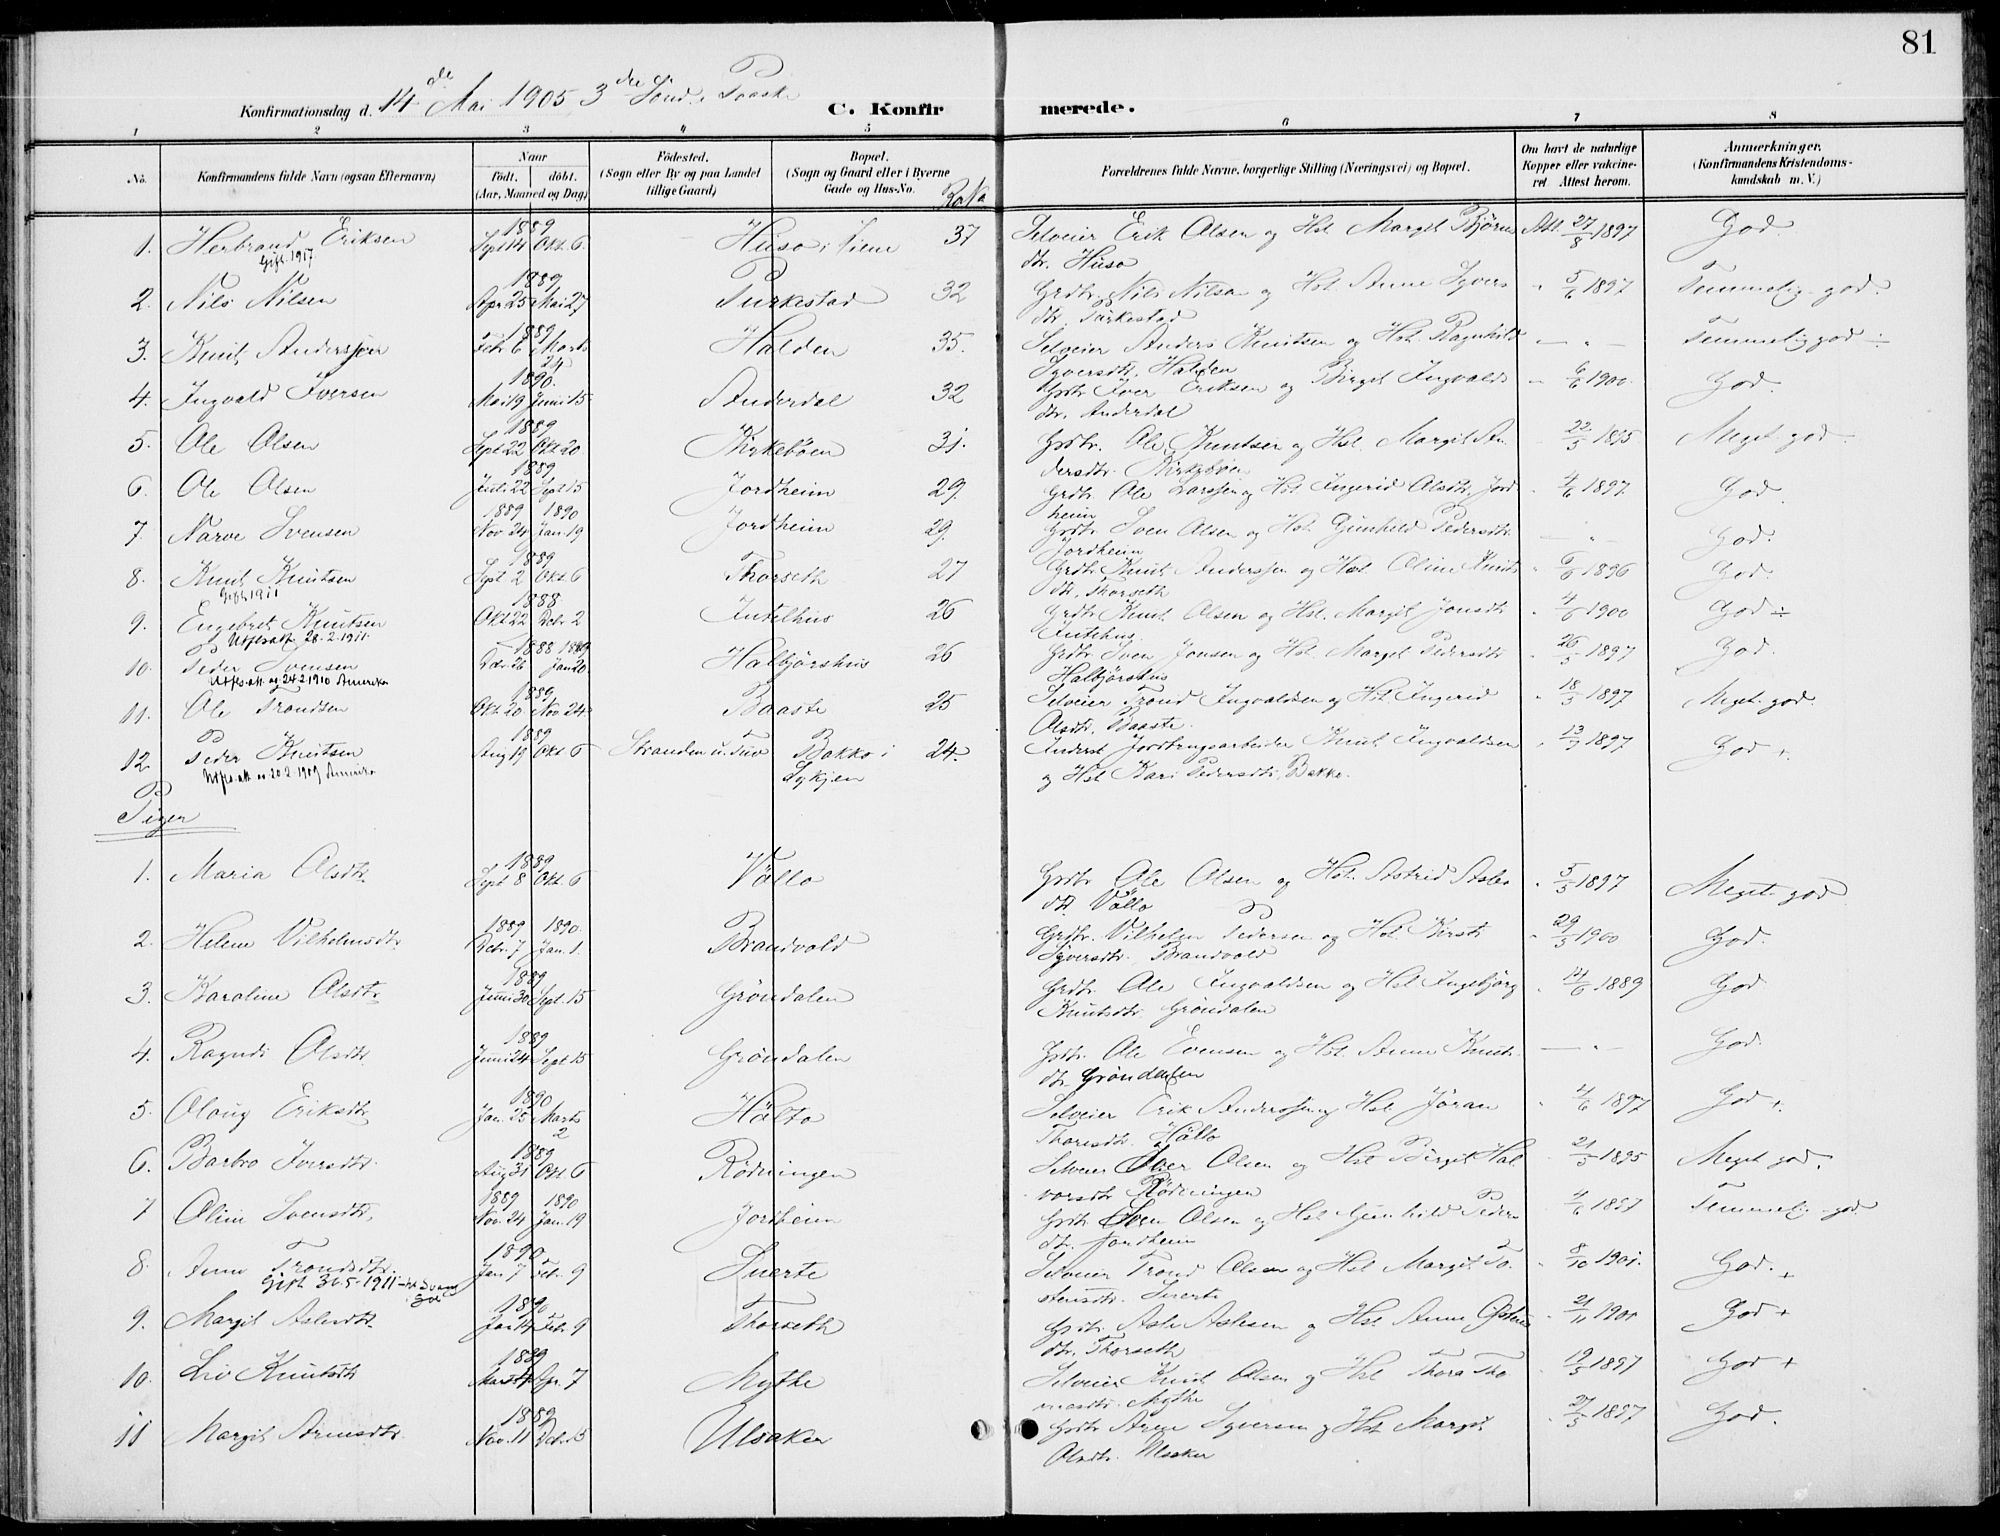 81
Konfirmationsdag d. 14de Mai 1905 3die Sönd. e. Paaske C. Konfirmerede.
1 2 3 4 5 6 7 8
No. Konfirmandens fulde Navn (ogsaa Efternavn). Naar født. døbt. (Aar, Maaned og Dag) Fødested. (Sogn eller By og paa Landet tillige Gaard) Bopæl. (Sogn og Gaard eller i Byerne Gade og Hus-No. Forældrenes fulde Navne, borgerlige Stilling (Næringsvei) og Bopæl. Om havt de naturlige Kopper eller vakcineret Attest herom. Anmerkninger. (Konfirmandens Kristendomskundskab m. V.)
1. Herbrand Eriksen 1889 Sept 14 Okt. 6. Huso i Viene 37 Selveier Erik Olsen og Hst Margit Björns Att. 27/8 1897 God.
Gift 1917 dtr. Huso
2. Nils Nilsen 1889 Apr 25 Mai 27 Turkestad 32 Grdbr. Nils Nilsen og Hst. Anne Syvers " 5/6 1897 Temmelig god.
dtr. Turkestad
3. Knut Anderssen 1889 Febr 6 Marts 24 Halden 35. Selveier Anders Knutsen og Hst. Ragnhild — " — Temmelig god ÷
Syversdtr. Halden
4. Ingvald Iversen 1890. Mai 19 Juni 15 Anderdal 32 Grdbr Iver Eriksen og Birgit Ingvalds " 6/6 1900. God.
dtr. Anderdal
5. Ole Olsen 1889 Sept 22 Okt 20 Kirkebøen 31. Grdbr. Ole Knutsen og Hst. Margit An- 22/5 1895 Meget god.
dersdtr. Kirkebøen
6. Ole Olsen 1889 Juli 22 Sept 15 Jordheim 29. Grdbr. Ole Larssen og Hst Ingerid Olsdtr. Jord " 4/6 1897. God
heim
7. Narve Svensen 1889 1890 Nov 24 Jan. 19 Jordheim 29. Grdbr Sven Olsen og Hst. Gunhild Pedersdtr. — " — God.
Jordheim
8. Knut Knutsen 1889 Sept 2 Okt. 6 Thorseth 27 Grdbr Knut Anderssen og Hst Oline Knuts " 6/6 1896 God.
Gift 1911 dtr. Thorseth
9. Engebret Knutsen 1888. Okt 22 Dcbr. 2 Intelhus 26 Grdbr Knut Olsen og Hst. Margit Jonsdtr " 4/6 1900 God ÷
Utfls.att. 28-2-1911. Intelhus.
10. Peder Svensen 1888 1889 Dcbr. 26 Jan 20. Halbjørshus 26 Grdbr Sven Jonsen og Hst. Margit Pedersdtr " 26/5 1897 God.
Utfls.att. ag 24.2.1910 Amerika Halbjørshus
11. Ole Trondsen 1889 Okt. 20 Nov 24 Baaste 25 Selveier Trond Ingvaldsen og Hst. Ingerid " 18/5 1897 Meget god.
Olsdtr. Baaste.
12. Peder Knutsen 1889 Aug 19 Okt 6 Stranden u. Tuv Bakko i 24. Inderst Jordbrugsarbeider Knut Ingvaldsen " 13/7 1897 God +
Utfls.att. 20.2.1909 Amerika Lykjen og Hst Kari Pedersdtr. Bakko.
Piger
1. Maria Olsdtr. 1889 Sept 8 Okt. 6 Völlo Grdbr Ole Olsen og Hst. Astrid Asles " 5/5 1897 Meget god
dtr. Völlo
2. Helene Vilhelmsdtr. 1889 1890. Dcbr. 7 Jan. 1. Brandvold Grdbr. Vilhelm Pedersen og Hst. Kirsti " 29/5 1900 God.
Syversdtr. Brandvold
3. Karoline Olsdtr. 1889 Juni 30 Sept. 15 Gröndalen Grdbr. Ole Ingvaldsen og Hst Ingebjörg " 14/6 1889 God
Knutsdtr. Gröndalen
4. Ragndi Olsdtr 1889 Juni 24 Sept 15 Gröndalen Grdbr. Ole Evensen og Hst. Anne Knuts- — " — God.
dtr. Gröndalen
5. Olaug Eriksdtr 1890 Jan. 25 Marts 2 Hölto Selveier Erik Anderssen og Hst Jöran " 4/6 1897 God +.
Thoresdtr. Hölto
6. Barbro Iversdtr. 1889 Aug 31 Okt 6 Rödningen Selveier Iver Olsen og Hst Birgit Hal- " 21/5 1895 Meget god.
vorsdtr Rödningen
7 Oline Svensdtr. 1889 1890 Nov. 24 Jan. 19 Jordheim Grdbr Sven Olsen og Hst Gunhild Peders " 4/6 1897 Temmelig god.
dtr. Jordheim
8. Anne Trondsdtr. 1890 Jan 7 Febr. 9 Snerte Selveier Trond Olsen og Hst Margit To- " 8/10 1901. God. +
Gift 31-5-1911 stensdtr. Snerte
9. Margit Aslesdtr. 1890 Jan 14 Febr 9 Thorseth Grdbr. Asle Aslesen og Hst Anne Østens " 21/11 1901 God +
dtr. Thorseth
10. Liv Knutsdtr 1889 Marts Apr. 7 Mythe Selveier Knut Olsen og Hst Thora Tho " 19/5 1897 God +
masdtr. Mythe
11 Margit Arnesdtr. 1889 Nov. 11 Dcbr. 15 Ulsaker Grdbr Arne Syversen og Hst Margit " 27/5 1897 God.
Olsdtr. Ulsaker